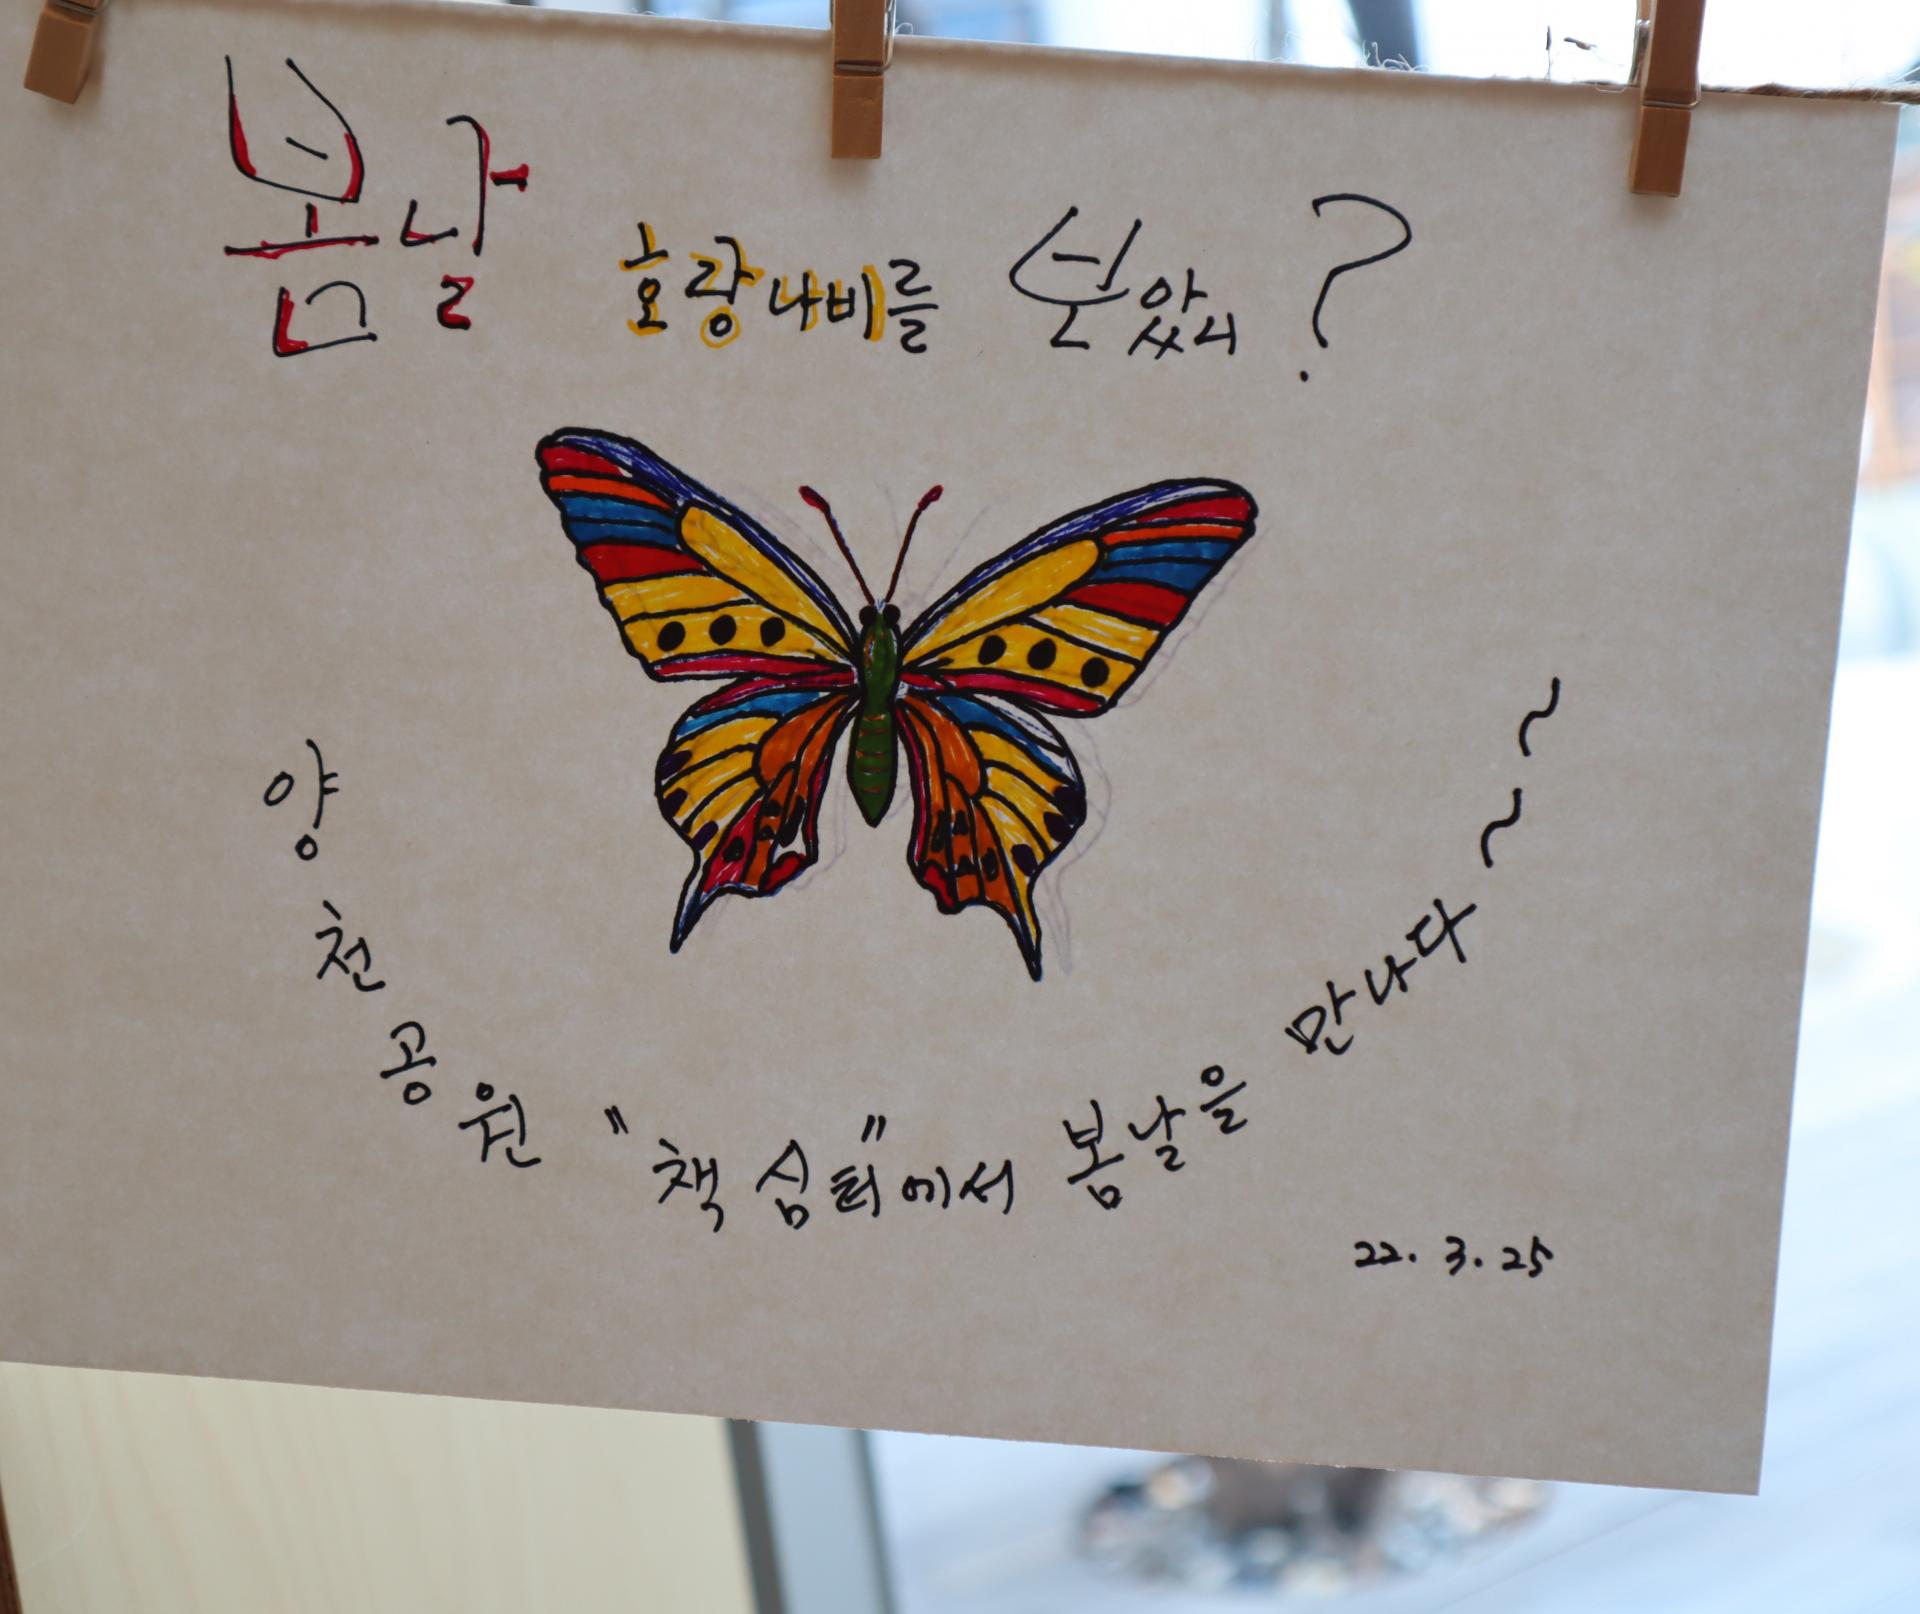 봄날 호랑나비를 보았니?
양천공원 "책쉼터"에서 봄날을 만나다~~
22. 3. 25